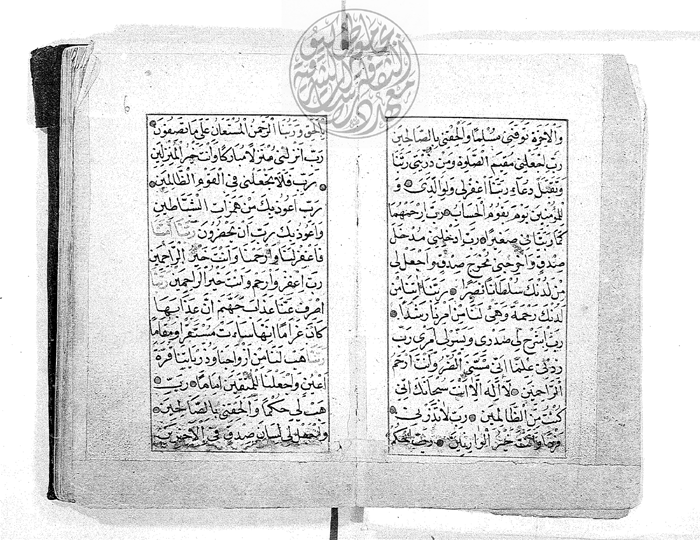 وَالْآخِرَةِ تَوَفَّنِي مُسْلِمًا وَأَلْحِقْنِي بِالصَّالِحِينَ
رَبِّ اجْعَلْنِي مُقِيمَ الصَّلَوةِ وَمِنْ ذُرِّيَّتِي رَبَّنَا
وَتَقَبَّلْ دُعَاءِ رَبَّنَا اغْفِرْ لِي وَلِوَالِدَيَّ وَ
لِلْمُؤْمِنِينَ يَوْمَ يَقُومُ الْحِسَابُ رَبِّ ارْحَمْهُمَا
كَمَا رَبَّيَانِي صَغِيرًا رَبِّ أَدْخِلْنِي مُدْخَلَ
صِدْقٍ وَأَخْرِجْنِي مُخْرَجَ صِدْقٍ وَاجْعَلْ لِي
مِنْ لَدُنْكَ سُلْطَانًا نَصِيرًا رَبَّنَا آتِنَا مِنْ
لَدُنْكَ رَحْمَةً وَهَيِّئْ لَنَا مِنْ أَمْرِنَا رَشَدًا
رَبِّ اشْرَحْ لِي صَدْرِي وَيَسِّرْ لِي أَمْرِي رَبِّ
زِدْنِي عِلْمًا أَنِّي مَسَّنِيَ الضُّرُّ وَأَنْتَ أَرْحَمُ
الرَّاحِمِينَ لَا إِلَهَ إِلَّا أَنْتَ سُبْحَانَكَ إِنِّي
كُنْتُ مِنَ الظَّالِمِينَ رَبِّ لَا تَذَرْنِي
فَرْدًا وَأَنْتَ خَيْرُ الْوَارِثِينَ رَبِّ احْكُمْ
بِالْحَقِّ وَرَبُّنَا الرَّحْمَنُ الْمُسْتَعَانُ عَلَى مَا تَصِفُونَ
رَبِّ أَنْزِلْنِي مُنْزَلًا مُبَارَكًا وَأَنْتَ خَيْرُ الْمُنْزِلِينَ
رَبِّ فَلَا تَجْعَلْنِي فِي الْقَوْمِ الظَّالِمِينَ
رَبِّ أَعُوذُ بِكَ مِنْ هَمَزَاتِ الشَّيَاطِينِ
وَأَعُوذُ بِكَ رَبِّ أَنْ يَحْضُرُونِ رَبَّنَا آمَنَّا
فَاغْفِرْ لَنَا وَارْحَمْنَا وَأَنْتَ خَيْرُ الرَّاحِمِينَ
رَبِّ اغْفِرْ وَارْحَمْ وَأَنْتَ خَيْرُ الرَّاحِمِينَ رَبَّنَا
اصْرِفْ عَنَّا عَذَابَ جَهَنَّمَ إِنَّ عَذَابَهَا
كَانَ غَرَامًا إِنَّهَا سَاءَتْ مُسْتَقَرًّا وَمُقَامًا
رَبَّنَا هَبْ لَنَا مِنْ أَزْوَاجِنَا وَذُرِّيَّاتِنَا قُرَّةَ
أَعْيُنٍ وَاجْعَلْنَا لِلْمُتَّقِينَ إِمَامًا رَبِّ
هَبْ لِي حُكْمًا وَأَلْحِقْنِي بِالصَّالِحِينَ
وَاجْعَلْ لِي لِسَانَ صِدْقٍ فِي الْآخِرِينَ